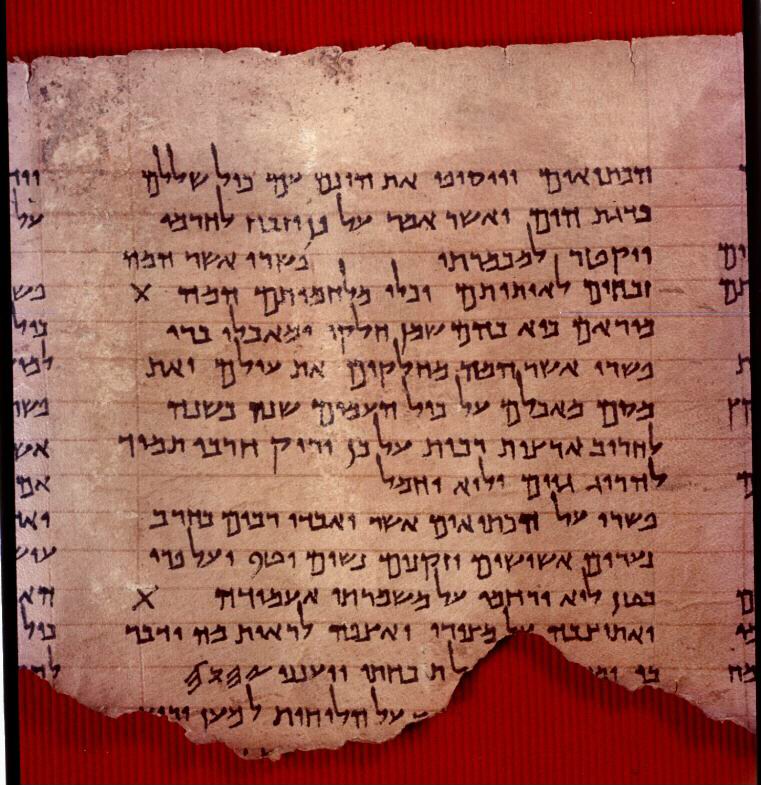 הכתיאים ויוסיפו את הונם עם כול שללם
כדגת הים ואשר אמר על כן יזבח לחרמו
ויקטר למכמרתו פשרו אשר המה
זבחים לאותותם וכלי מלחמותם המה X
מוראם כיא בהם שמן חלקו ומאכלו ברי
פשרו אשר המה מחלקים את עולם ואת
מסם מאכלם על כול העמים שנה בשנה
לחריב ארצות רבות על כן יריק חרבו תמיד
להרוג גוים ולוא יחמל
פשרו על הכתיאים אשר יאבדו רבים בחרב
נערים אשישים וזקנים נשים וטף ועל פרי
בטן לוא ירחמו על משמרתי אעמודה X
ואתיצבה על מצורי ואצפה לראות מה ידבר
בי תוכחתי ויענני 𐤉𐤄𐤅𐤄
על הלוחות למען ירוץ